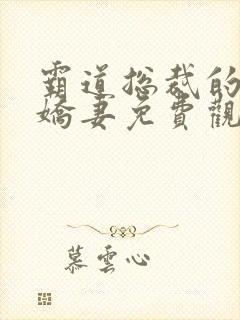 霸道总裁的
嬌妻免費觀
慕雲心